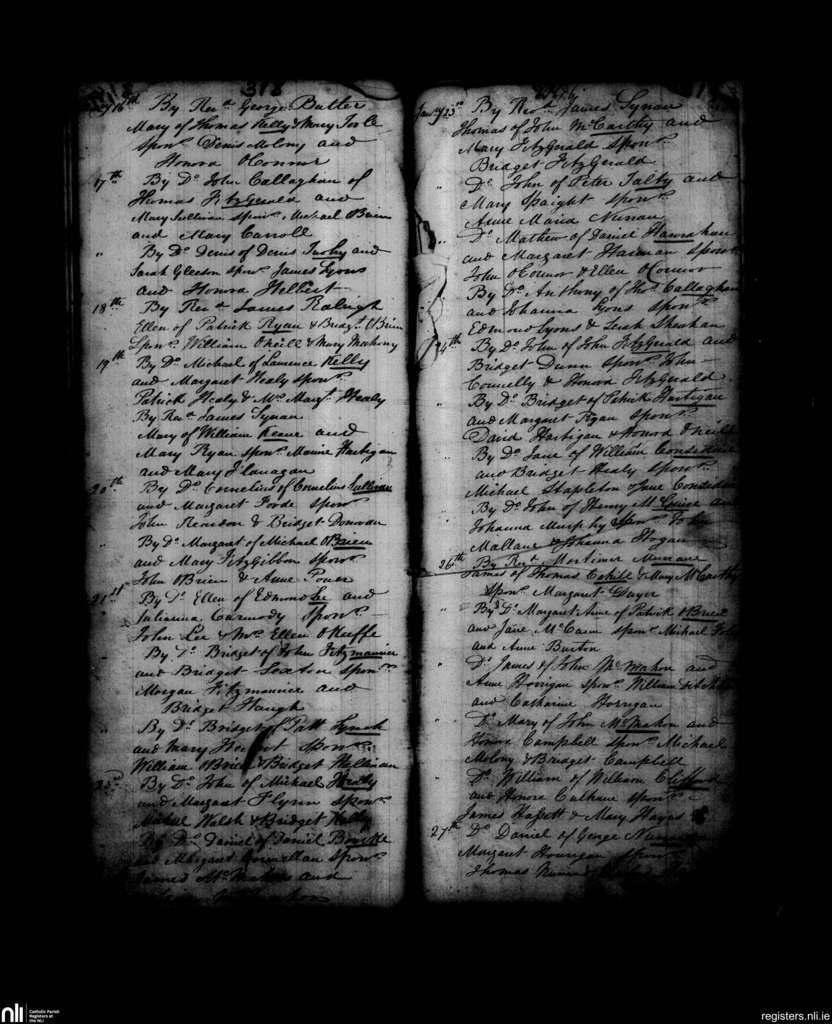 318
16th By Revd George Butler
Mary of Thomas Kelly & Mary Toole
sponrs Denis Molony and
Honora O Connor
17th By Do John Callaghan of
Thomas Fitzgerald and
Mary Sullivan sponrs Michael OBrien
and Mary Carroll
" By Do Denis of Denis Tuohy and
Sarah Gleeson sponrs James Lyons
and Honora Helbert
18th By Revd James Raleigh
Ellen of Patrick Ryan & Bridgt OBrien
Sponrs William Oneill & Mary Mahony
19th By Do Michael of Laurence Kelly
and Margaret Healy sponrs
Patrick Healy & Mrs Margt Healy
By Revd James Synan
Mary of William Keane and
Mary Ryan sponrs Maurice Hartigan
and Mary Flanagan
20th By Do Cornelius of Cornelius Sullivan
and Margaret Forde sponrs
John Reardon & Bridget Donovan
" By Do Margaret of Michael OBrien
and Mary FitzGibbon sponrs
John OBrien & Anne Power
21st By Do Ellen of Edmond Lee and
Julianna Carmody sponrs
John Lee & Mrs Ellen OKeeffe
By Do Bridget of John Fitzmaurice
and Bridget Sexton sponrs
Morgan Fitzmaurice and
Bridget Haugh
" By Do Bridget of Patt Lynch
and Mary sponrs
William OBrien & Bridget
23rd By Do John of Michael Healy
and Margaret Flynn sponrs
Michael Walsh & Bridget Kelly
By Do Daniel of Daniel Bourke
and Margaret sponrs
James McMahon and
Jany 23rd By Revd James Synan
Thomas of John McCarthy and
Mary FitzGerald sponrs
Bridget FitzGerald
" Do John of Peter Talty and
Mary Haight sponrs
Anne Maria Nunan
" Do Mathew of Daniel Hanrahan
and Margaret Hannan sponrs
John OConnor & Ellen OConnor
By Do Anthony of Thos Callaghan
and Johanna Lyons sponrs
Edmond Lyons & Sarah Sheehan
24th By Do John of John FitzGerald and
Bridget Dunn sponrs John
Connelly & Honora FitzGerald
" By Do Bridget of Patrick Hartigan
and Margaret Ryan sponrs
David Hartigan & Honora ONeill
" By Do Jane of William Considine
and Bridget Healy sponrs
Michael Stapleton & Jane Considine
" By Do John of Henry and
Johanna Murphy sponrs John
Mallane & Johanna Hogan
26th By Revd Mortimer
James of Thomas Cahill & Mary McCarthy
sponrs Margaret Dwyer
" By Do Margaret Anne of Patrick OBrien
and Jane McCann sponrs Michael
and Anne Burton
" Do James of John McMahon and
Anne Horrigan sponrs William
and Catharine Horrigan
" Do Mary of John McMahon and
Honora Campbell sponrs Michael
Molony & Bridget Campbell
" Do William of William Clifford
and Honora Culhane sponrs
James Hassett & Mary Hayes
27th Do Daniel of George
Margaret Hourigan sponrs
Thomas
nli
Catholic Parish
Registers at
the NLI
registers.nli.ie